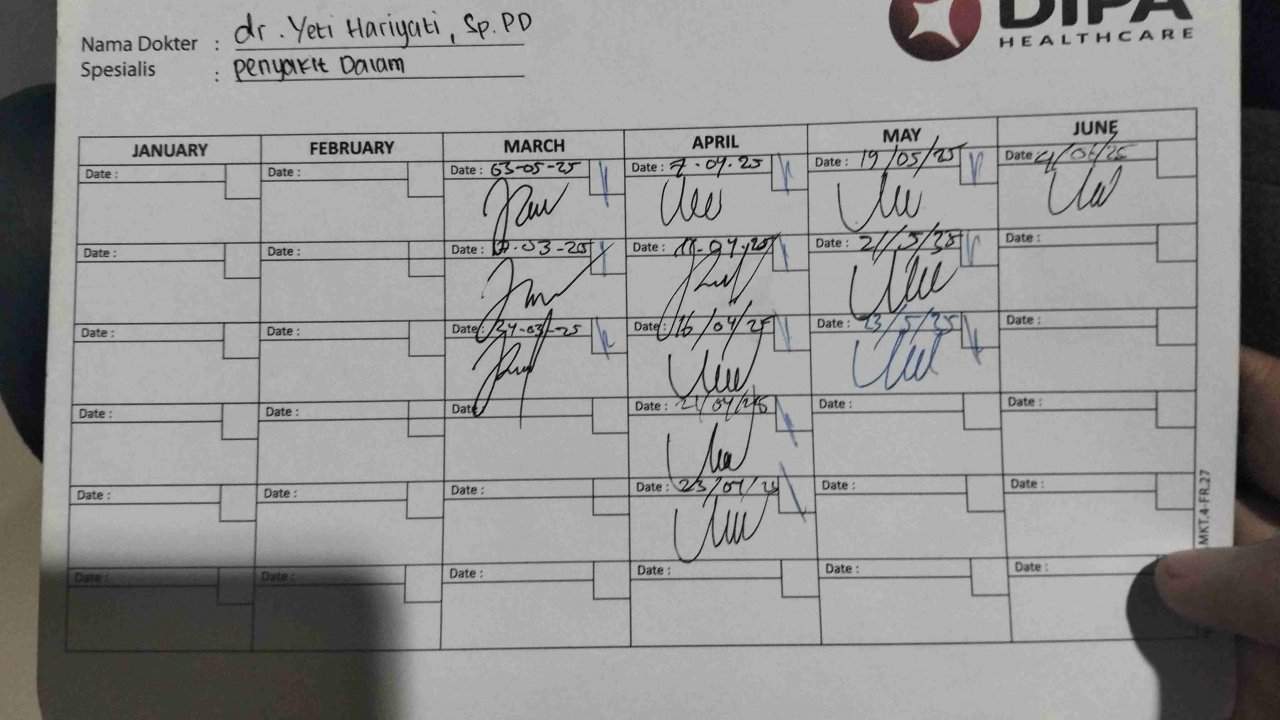 DIPA
HEALTHCARE
Nama Dokter : dr. Yeti Hariyati, Sp.PD
Spesialis : Penyakit Dalam
JANUARY FEBRUARY MARCH APRIL MAY JUNE
Date : Date : Date : 03-05-25 Date : 7-04-25 Date : 19/05/25 Date 4/06/25
Date : Date : Date : -03-25 Date : 11-04-25 Date : 21/5/25 Date :
Date : Date : Date : 24-03-25 Date : 16/04/25 Date : 23/5/25 Date :
Date : Date : Date Date : 21/04/25 Date : Date :
Date : Date : Date : Date : 23/04/25 Date : Date :
Date : Date : Date : Date : Date : Date :
MKT.4-FR.27